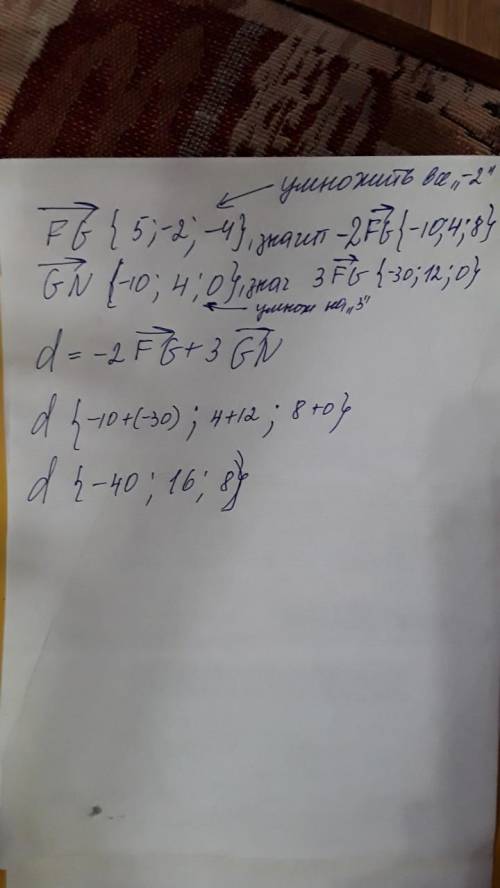 умножить на „-2"
FG {5; -2; -4}, значит -2FG {-10; 4; 8}
GN {-10; 4; 0}, знач 3FG {-30; 12; 0}
умнож на „3"
d = -2FG + 3GN
d {-10+(-30); 4+12; 8+0}
d {-40; 16; 8}